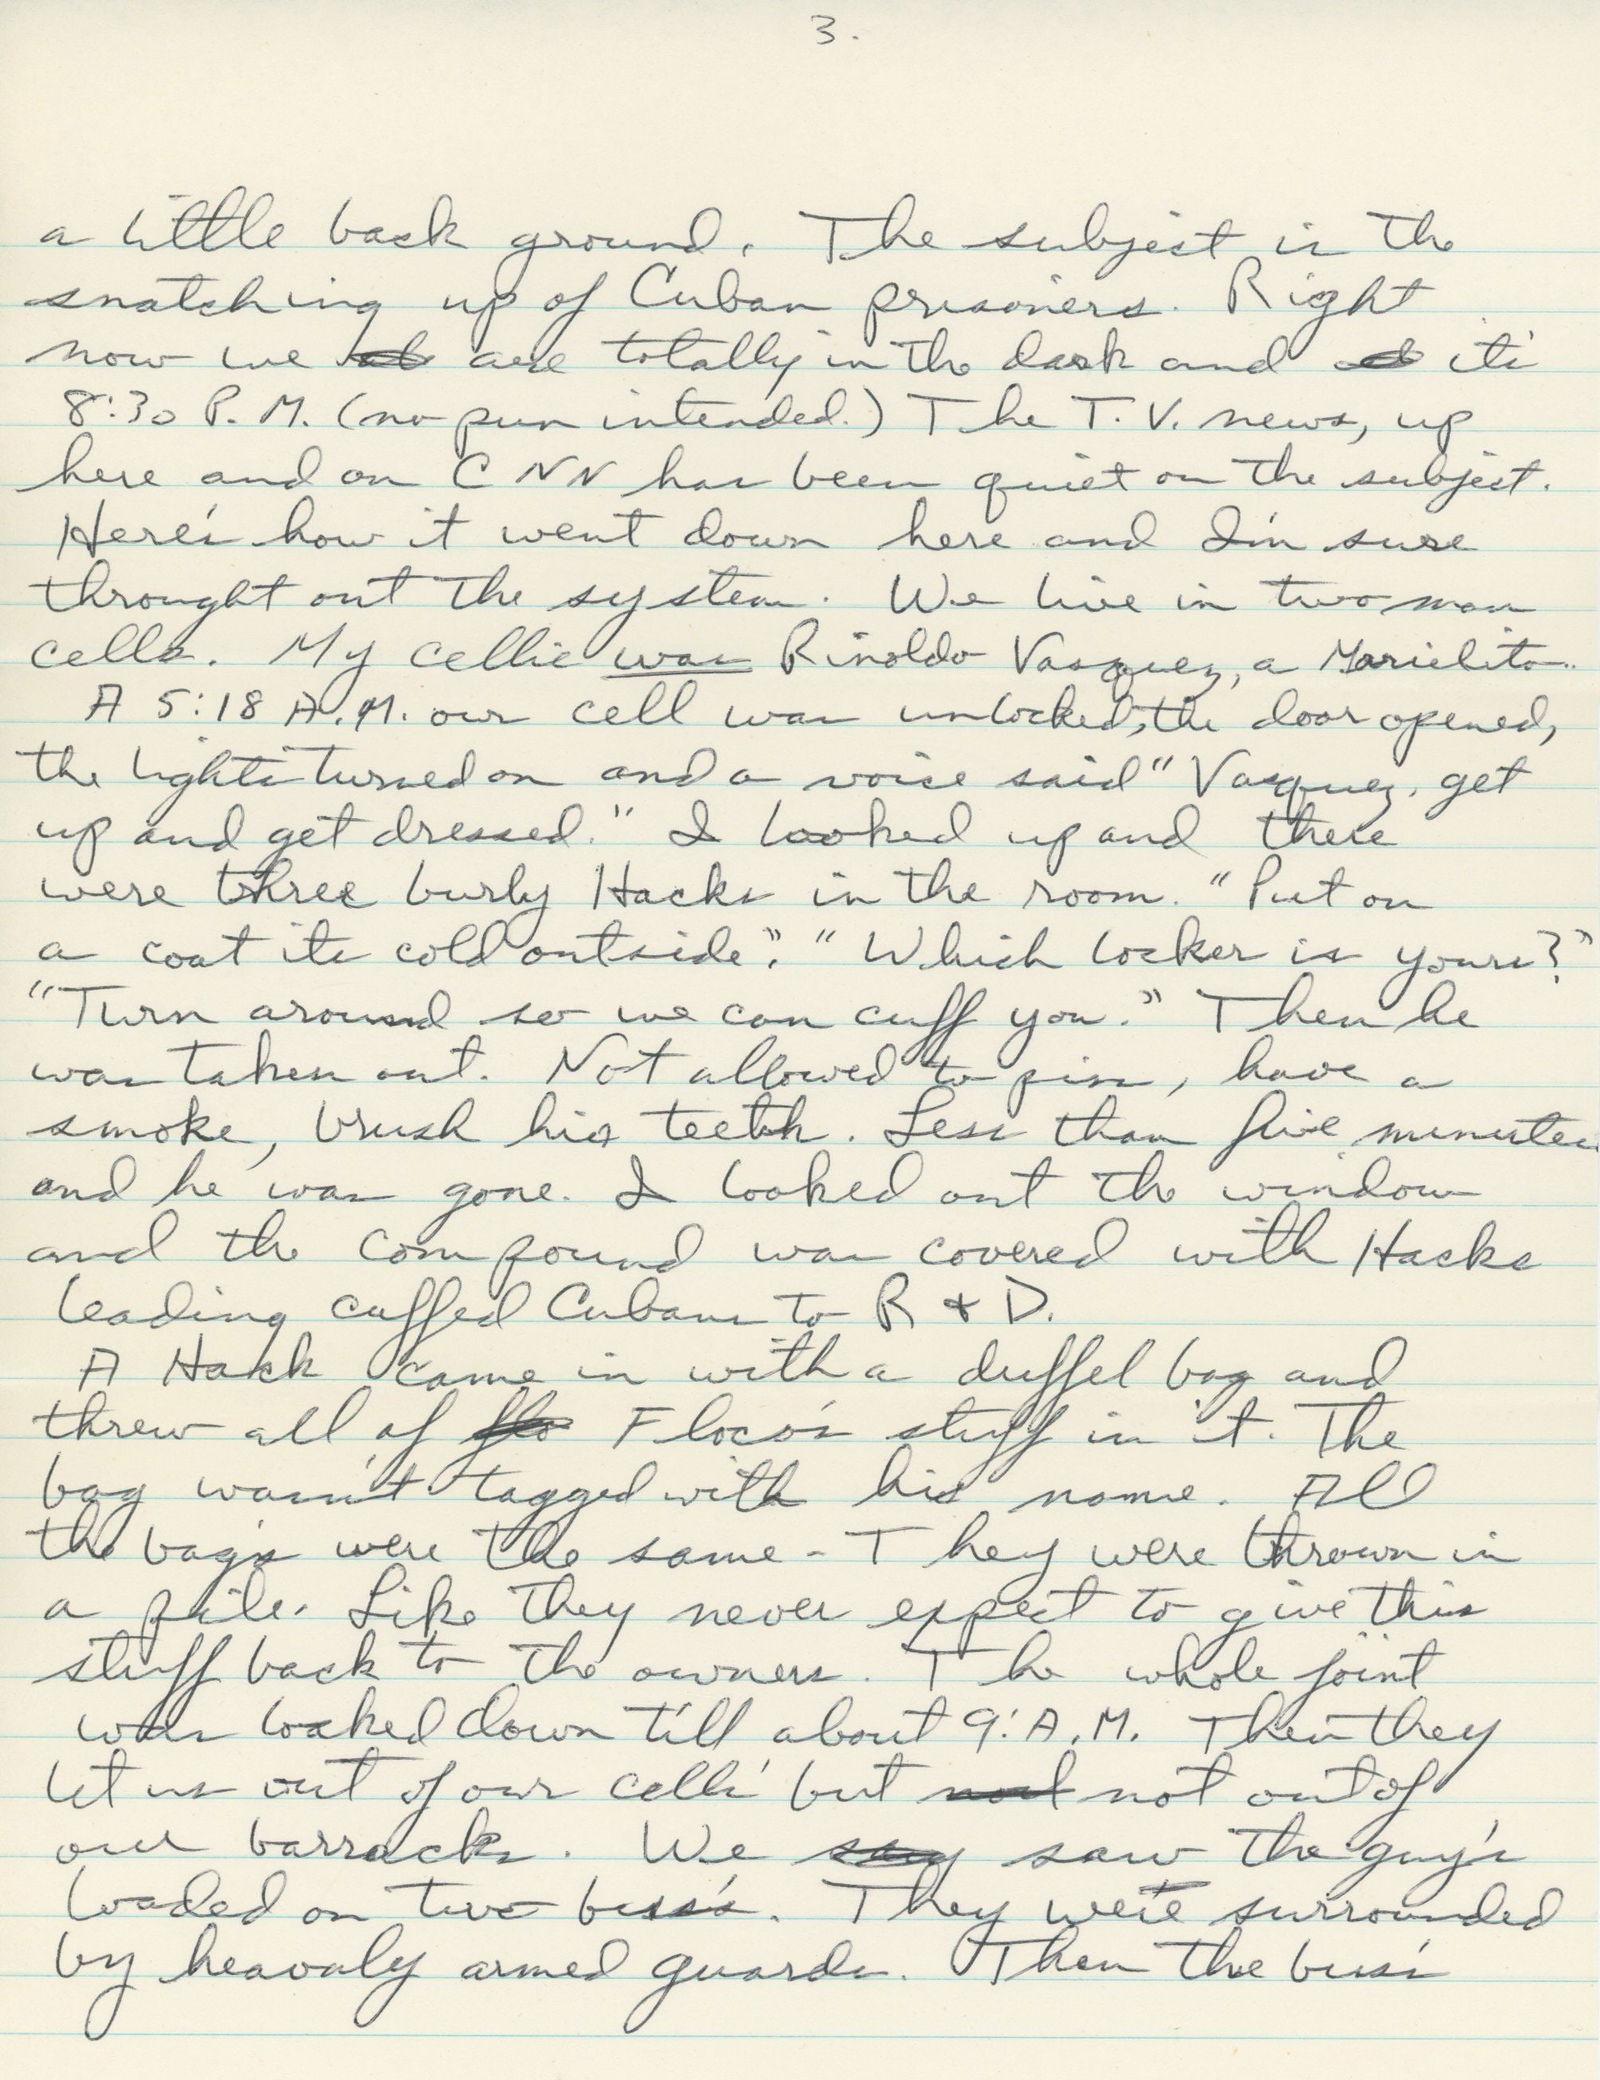 3.
a little back ground. The subject is the
snatching up of Cuban prisoners. Right
now we are totally in the dark and it's
8:30 P.M. (no pun intended.) The T.V. news, up
here and on CNN has been quiet on the subject.
Here's how it went down here and I'm sure
throught out the system. We live in two man
cells. My cellie was Rinoldo Vasquez, a Marielito.
A 5:18 A.M. our cell was unlocked, the door opened,
the lights turned on and a voice said "Vasquez, get
up and get dressed." I looked up and there
were three burly Hacks in the room. "Put on
a coat its cold outside". "Which locker is yours?"
"Turn around so we can cuff you." Then he
was taken out. Not allowed to piss, have a
smoke, brush his teeth. Less than five minutes
and he was gone. I looked out the window
and the compound was covered with Hacks
leading cuffed Cubans to R & D.
A Hack came in with a duffel bag and
threw all of Floco's stuff in it. The
bag wasn't tagged with his name. All
the bag's were the same - They were thrown in
a pile. Like they never expect to give this
stuff back to the owners. The whole joint
was locked down till about 9: A.M. Then they
let us out of our cells' but not out of
our barracks. We saw the guy's
loaded on two buss's. They were surrounded
by heavaly armed guards. Then the bus's